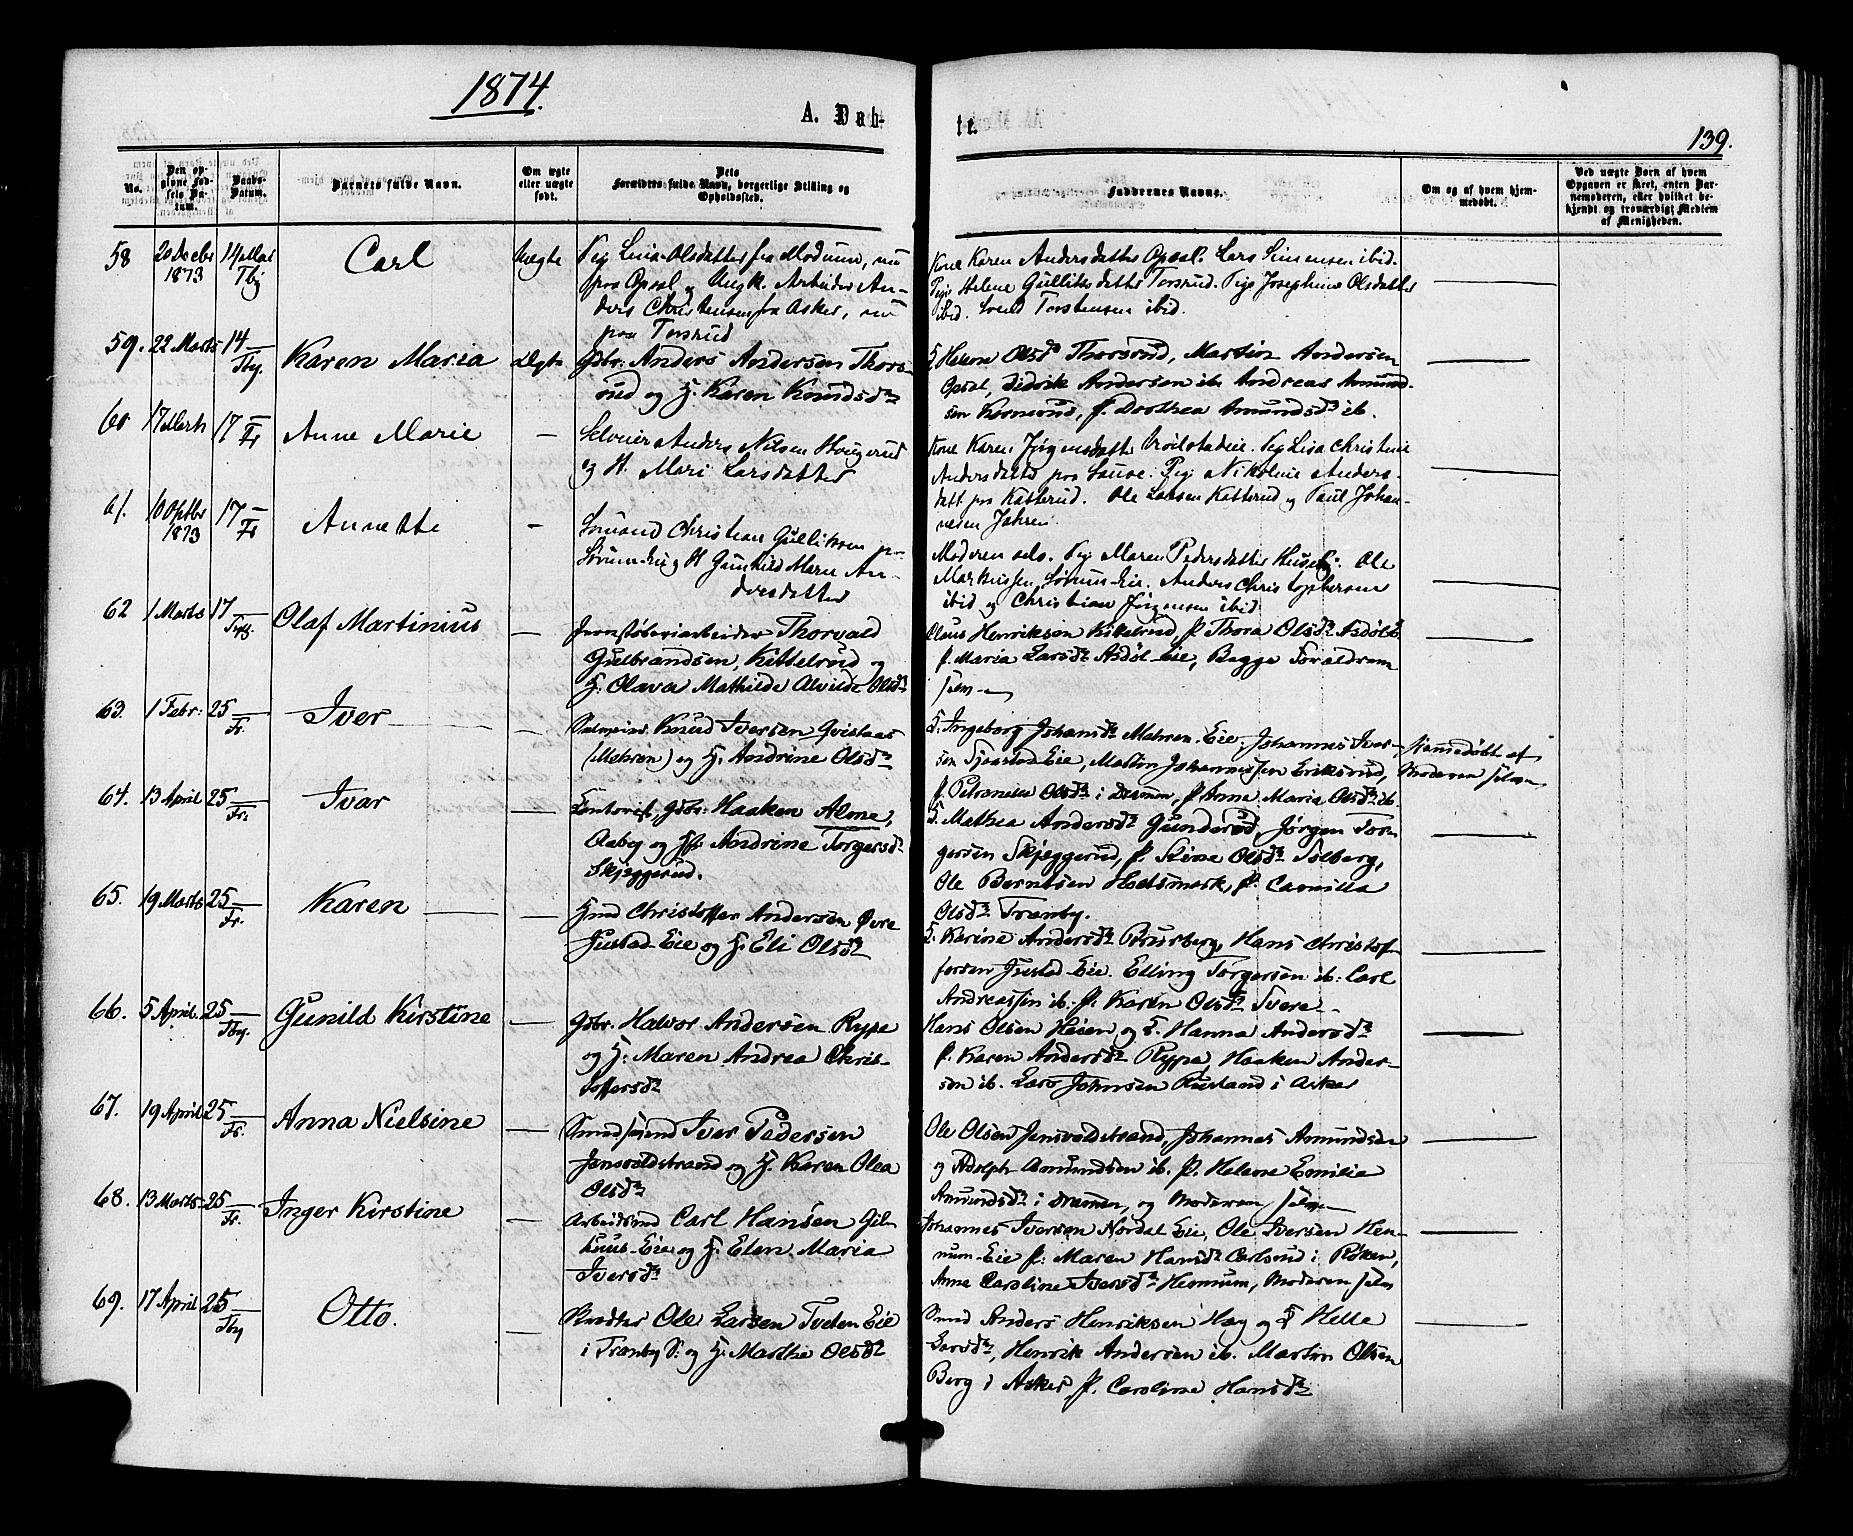 1874.
A. Døb-
te.
139.
No.
Den op-
givne Fød-
sels Da-
tum.
Daabs-
Datum.
Barnets fulde Navn.
Om ægte
eller uægte
født.
Dets
Forældres fulde Navn, borgerlige Stilling og
Opholdssted.
Faddernes Navne.
Om og af hvem hjem-
medøbt.
Ved uægte Børn af hvem
Opgaven er skeet, enten Bar-
nemoderen, eller hvilket be-
kjendt og troværdigt Medlem
af Menigheden.
58 20 Decbr 1873 14 Mai Tby Carl Uægte
Pig Lina Olsdatter fra Modum, nu
paa Opsal og Ungk. Arbeider An-
ders Christensen fra Asker, nu
paa Torsrud
Kone Karen Andersdatter Opsal. Lars Simensen ibid.
Pige Helene Gulliksdatter Torsrud. Pige Josephine Olsdatter
ibid. Svend Torstensen ibid.
59. 22 Marts 14 Tby. Karen Maria Ægte
Gbr. Anders Andersen Thors-
rud og H. Karen Knudsdr
H Helene Olsdr Thorsrud, Martin Andersen
Opsal, Didrik Andersen ib. Andreas Amund-
sen, P. Dorthea Amundsdr ib.
60 17 Marts 17 Fr Anne Marie —
Selveier Anders Nilsen Haugerud
og H. Mari Larsdatter
Kone Karen Jørgensdatter. Pig Lisa Christine
Andersdatter paa. Pig Nikoline Anders-
datt paa Katterud. Ole Larsen Katterud og Paul Johan-
nesen Jahren.
61. 10 Octbr 1873 17 Fr Annette —
Sømand Christian Gulliksen
og H Gunhild Marie An-
dersdatter
Moderen selv. Pig Maren Pedersdatter Huseby. Ole
Markussen, Sørum Eie. Anders Christophersen
ibid og Christian Jørgensen ibid
62 1 Marts 17 Tby. Olaf Martinius —
Jernstøberiarbeider Thorvald
Gulbrandsen, Kittelrud og
H. Olava Mathilde Alvilde Olsdr
Claus Henriksen Kittelrud, P. Thora Olsdr Asdøl
P. Maria Larsdr Asdøl Eie, Begge Forældrene
selv
63. 1 Febr: 25 Fr. Iver —
Knud Iversen Qvislaas
(Mehren) og H. Andrine Olsdr
H. Ingeborg Johansdr Mehren Eie, Johannes Iver-
sen Sjaastad Eie, Martin Johannessen Eriksrud,
P. Petronille Olsdr i Drammen, P. Anna Maria Olsdr ib.
Hjemmedøbt af
Moderen selv
64. 13 April 25 Fr. Ivar —
Kontorist, Gbr. Haaken Alme,
Aaby og H. Andrine Torgersdr
Skjeggerud.
H. Mathea Andersdr Gunderud, Jørgen Tor-
gersen Skjeggerud, P. Stine Olsdr Solberg,
Ole Berntsen Hotsmark, P. Camilla
Olsdr Tranby.
65. 19 Marts 25 Fr. Karen —
Hmd Christoffer Andersen Øvre
Justad Eie og H. Eli Olsdr
H. Karine Andersdr, Hans Christof-
fersen Justad Eie. Edling Torgersen ib. Carl
Andreassen ib. P. Karen Olsdr Tvere
66. 5 April. 25 Tby. Gunild Kirstine —
Gbr. Halvor Andersen Rype
og H. Maren Andrea Chris-
toffersdr
Hans Olsen Heien og H. Hanna Andersdr
P. Karen Andersdr Rype, Haaken Ander-
sen ib. Lars Johnsen Rustand i Asker
67. 19 April 25 Fr. Anna Nielsine —
Iver Pedersen
Jensvoldstrand og H. Karen Olea
Olsdr
Ole Olsen Jensvoldstrand, Johannes Amundsen
og Adolph Amundsen ib. P. Helene Emilia
Amundsdr i Drammen, og Moderen selv
68. 13 Marts 25 Fr. Inger Kirstine —
Arbeidsmd Carl Hansen Gil-
huus Eie og H. Elen Maria
Iversdr
Johannes Iversen Nordal Eie, Ole Iversen Hen-
num Eie P. Maren Hansdr Carlsrud i Røken,
Anne Caroline Iversdr Hennum, Moderen selv
69. 17 April 25 Tby Otto. —
Ole Larsen Tveten Eie
i Tranby S. og H. Marthe Olsdr
Smed Anders Henriksen Hæg og H Helle
Larsdr, Henrik Andersen ib. Martin Olsen
Berg i Asker, P. Caroline Hansdr